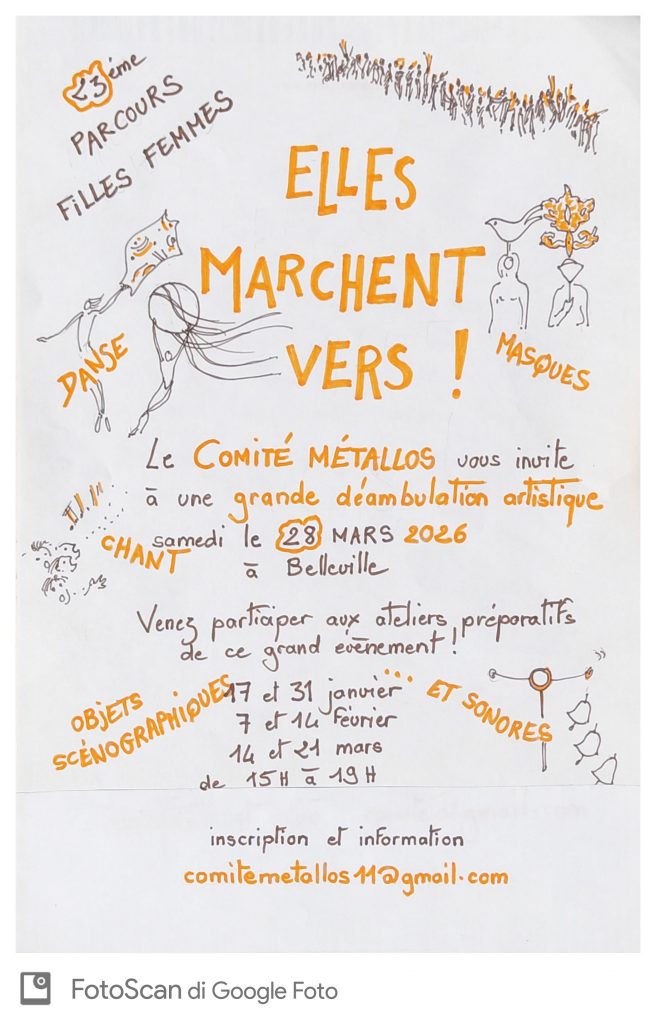 23ème
PARCOURS
FILLES FEMMES
ELLES
MARCHENT
VERS !
DANSE
MASQUES
Le COMITÉ MÉTALLOS vous invite
à une grande déambulation artistique
samedi le 28 MARS 2026
à Belleville
CHANT
Venez participer aux ateliers préparatifs
de ce grand évènement !
OBJETS
SCÉNOGRAPHIQUES
... ET SONORES
17 et 31 janvier
7 et 14 février
14 et 21 mars
de 15H à 19H
inscription et information
comitemetallos11@gmail.com
FotoScan di Google Foto